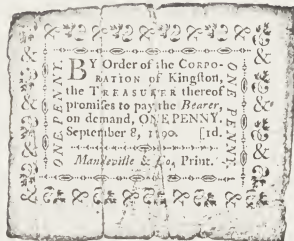 BY Order of the CORPO-
RATION of Kingston,
the TREASURER thereof
promises to pay the Bearer,
on demand, ONE PENNY.
September 8, [1d.
Mandeville & Co, Print.
ONE PENNY.
ONE PENNY.